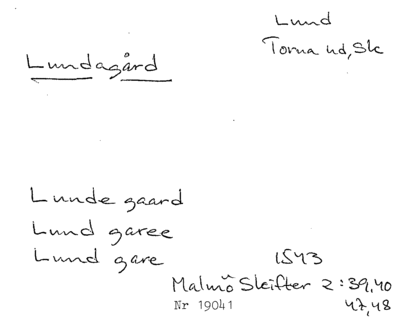 Lund
Torna hd, Sk
Lundagård
Lunde gaard
Lund garee
Lund gare 1543
Malmö Skifter 2:39,40
Nr 19041 47,48